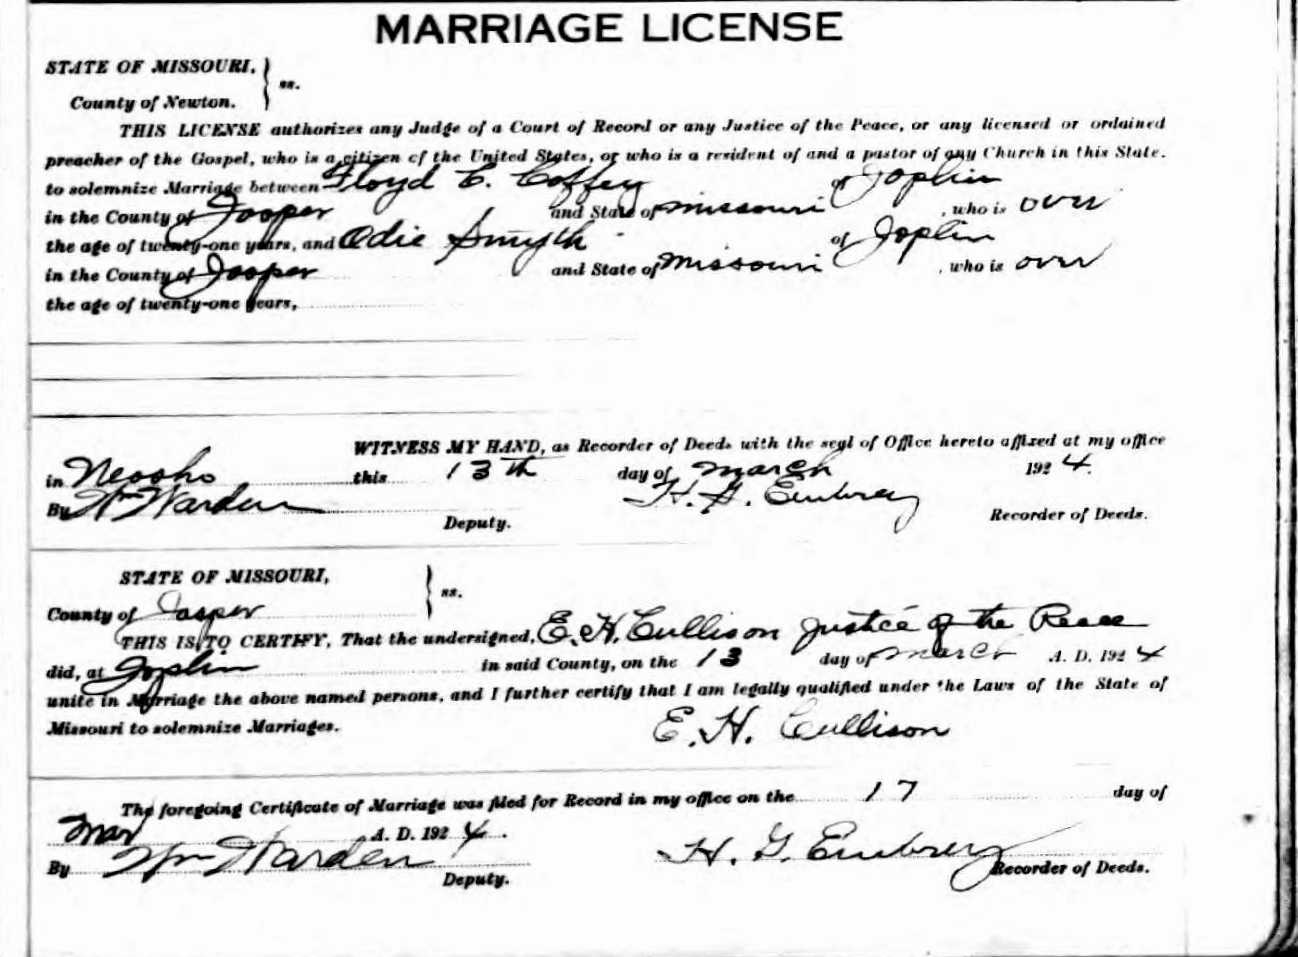 MARRIAGE LICENSE
STATE OF MISSOURI, } ss.
County of Newton.
THIS LICENSE authorizes any Judge of a Court of Record or any Justice of the Peace, or any licensed or ordained
preacher of the Gospel, who is a citizen of the United States, or who is a resident of and a pastor of any Church in this State.
to solemnize Marriage between Floyd C. Coffey of Joplin
in the County of Jasper and State of Missouri, who is over
the age of twenty-one years, and Odie Smyth of Joplin
in the County of Jasper and State of Missouri, who is over
the age of twenty-one years,
WITNESS MY HAND, as Recorder of Deeds with the seal of Office hereto affixed at my office
in Neosho this 13th day of March 1924.
By Wm Warden Deputy. H. G. Embrey Recorder of Deeds.
STATE OF MISSOURI, } ss.
County of Jasper
THIS IS TO CERTIFY, That the undersigned, E. H. Cullison Justice of the Peace
did, at Joplin in said County, on the 13 day of March A. D. 1924
unite in Marriage the above named persons, and I further certify that I am legally qualified under the Laws of the State of
Missouri to solemnize Marriages. E. H. Cullison
The foregoing Certificate of Marriage was filed for Record in my office on the 17 day of
Mar A. D. 1924.
By Wm Warden Deputy. H. G. Embrey Recorder of Deeds.